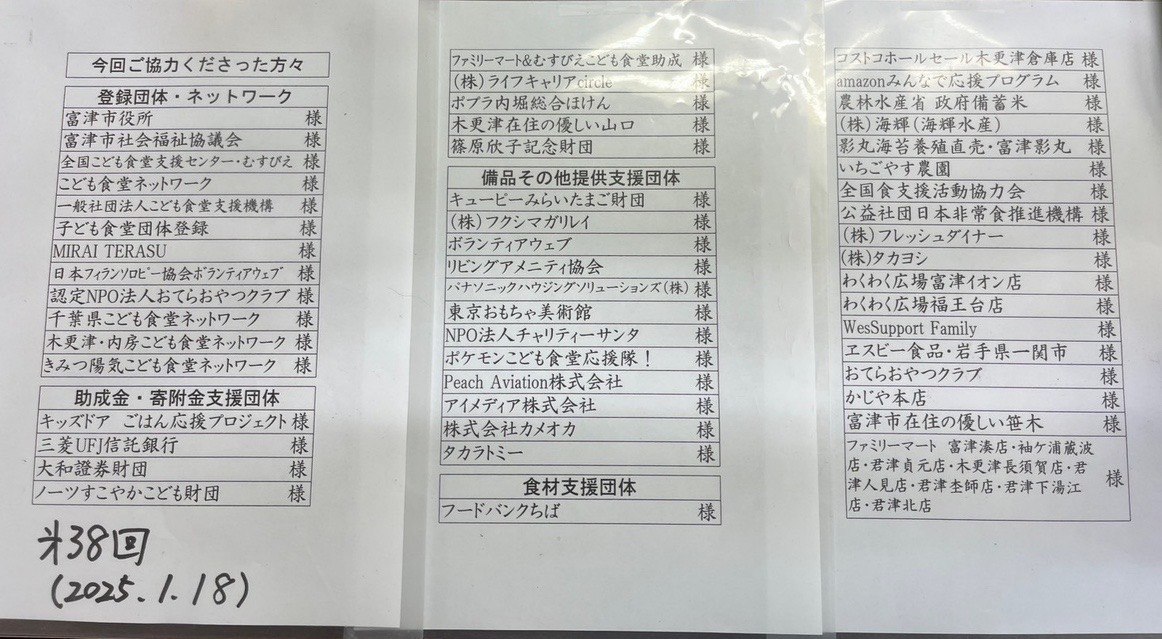 今回ご協力くださった方々
登録団体・ネットワーク
富津市役所 様
富津市社会福祉協議会 様
全国こども食堂支援センター・むすびえ 様
こども食堂ネットワーク 様
一般社団法人こども食堂支援機構 様
子ども食堂団体登録 様
MIRAI TERASU 様
日本フィランソロピー協会ボランティアウェブ 様
認定NPO法人おてらおやつクラブ 様
千葉県こども食堂ネットワーク 様
木更津・内房こども食堂ネットワーク 様
きみつ陽気こども食堂ネットワーク 様
助成金・寄附金支援団体
キッズドア ごはん応援プロジェクト 様
三菱UFJ信託銀行 様
大和證券財団 様
ノーツすこやかこども財団 様
第38回
(2025.1.18)
ファミリーマート&むすびえこども食堂助成 様
(株)ライフキャリアcircle 様
ポプラ内堀総合ほけん 様
木更津在住の優しい山口 様
篠原欣子記念財団 様
備品その他提供支援団体
キューピーみらいたまご財団 様
(株)フクシマガリレイ 様
ボランティアウェブ 様
リビングアメニティ協会 様
パナソニックハウジングソリューションズ(株) 様
東京おもちゃ美術館 様
NPO法人チャリティーサンタ 様
ポケモンこども食堂応援隊! 様
Peach Aviation株式会社 様
アイメディア株式会社 様
株式会社カメオカ 様
タカラトミー 様
食材支援団体
フードバンクちば 様
コストコホールセール木更津倉庫店 様
amazonみんなで応援プログラム 様
農林水産省 政府備蓄米 様
(株)海輝(海輝水産) 様
影丸海苔養殖直売・富津影丸 様
いちごやす農園 様
全国食支援活動協力会 様
公益社団日本非常食推進機構 様
(株)フレッシュダイナー 様
(株)タカヨシ 様
わくわく広場富津イオン店 様
わくわく広場福王台店 様
WesSupport Family 様
ヱスビー食品・岩手県一関市 様
おてらおやつクラブ 様
かじや本店 様
富津市在住の優しい笹木 様
ファミリーマート 富津湊店・袖ケ浦蔵波
店・君津貞元店・木更津長須賀店・君
津人見店・君津杢師店・君津下湯江
店・君津北店 様